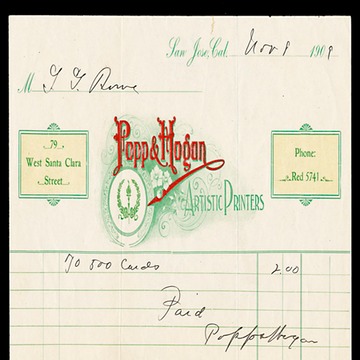 San Jose, Cal. Nov 8 1908
M T. F. Bowe
Popp & Hogan
Artistic Printers
79
West Santa Clara
Street
Phone:
Red 5741
To 500 Cards 2.00
Paid
Popp & Hogan